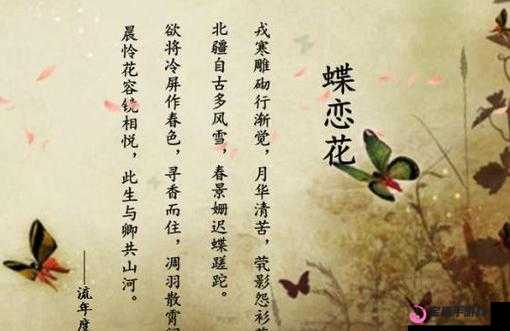 蝶恋花
戎寒雕砌行渐觉，月华清苦，茕影怨衫
北疆自古多风雪，春景姗迟蝶蹉跎。
欲将冷屏作春色，寻香而住，凋羽散霄
晨怜花容镜相悦，此生与卿共山河。
——流年度